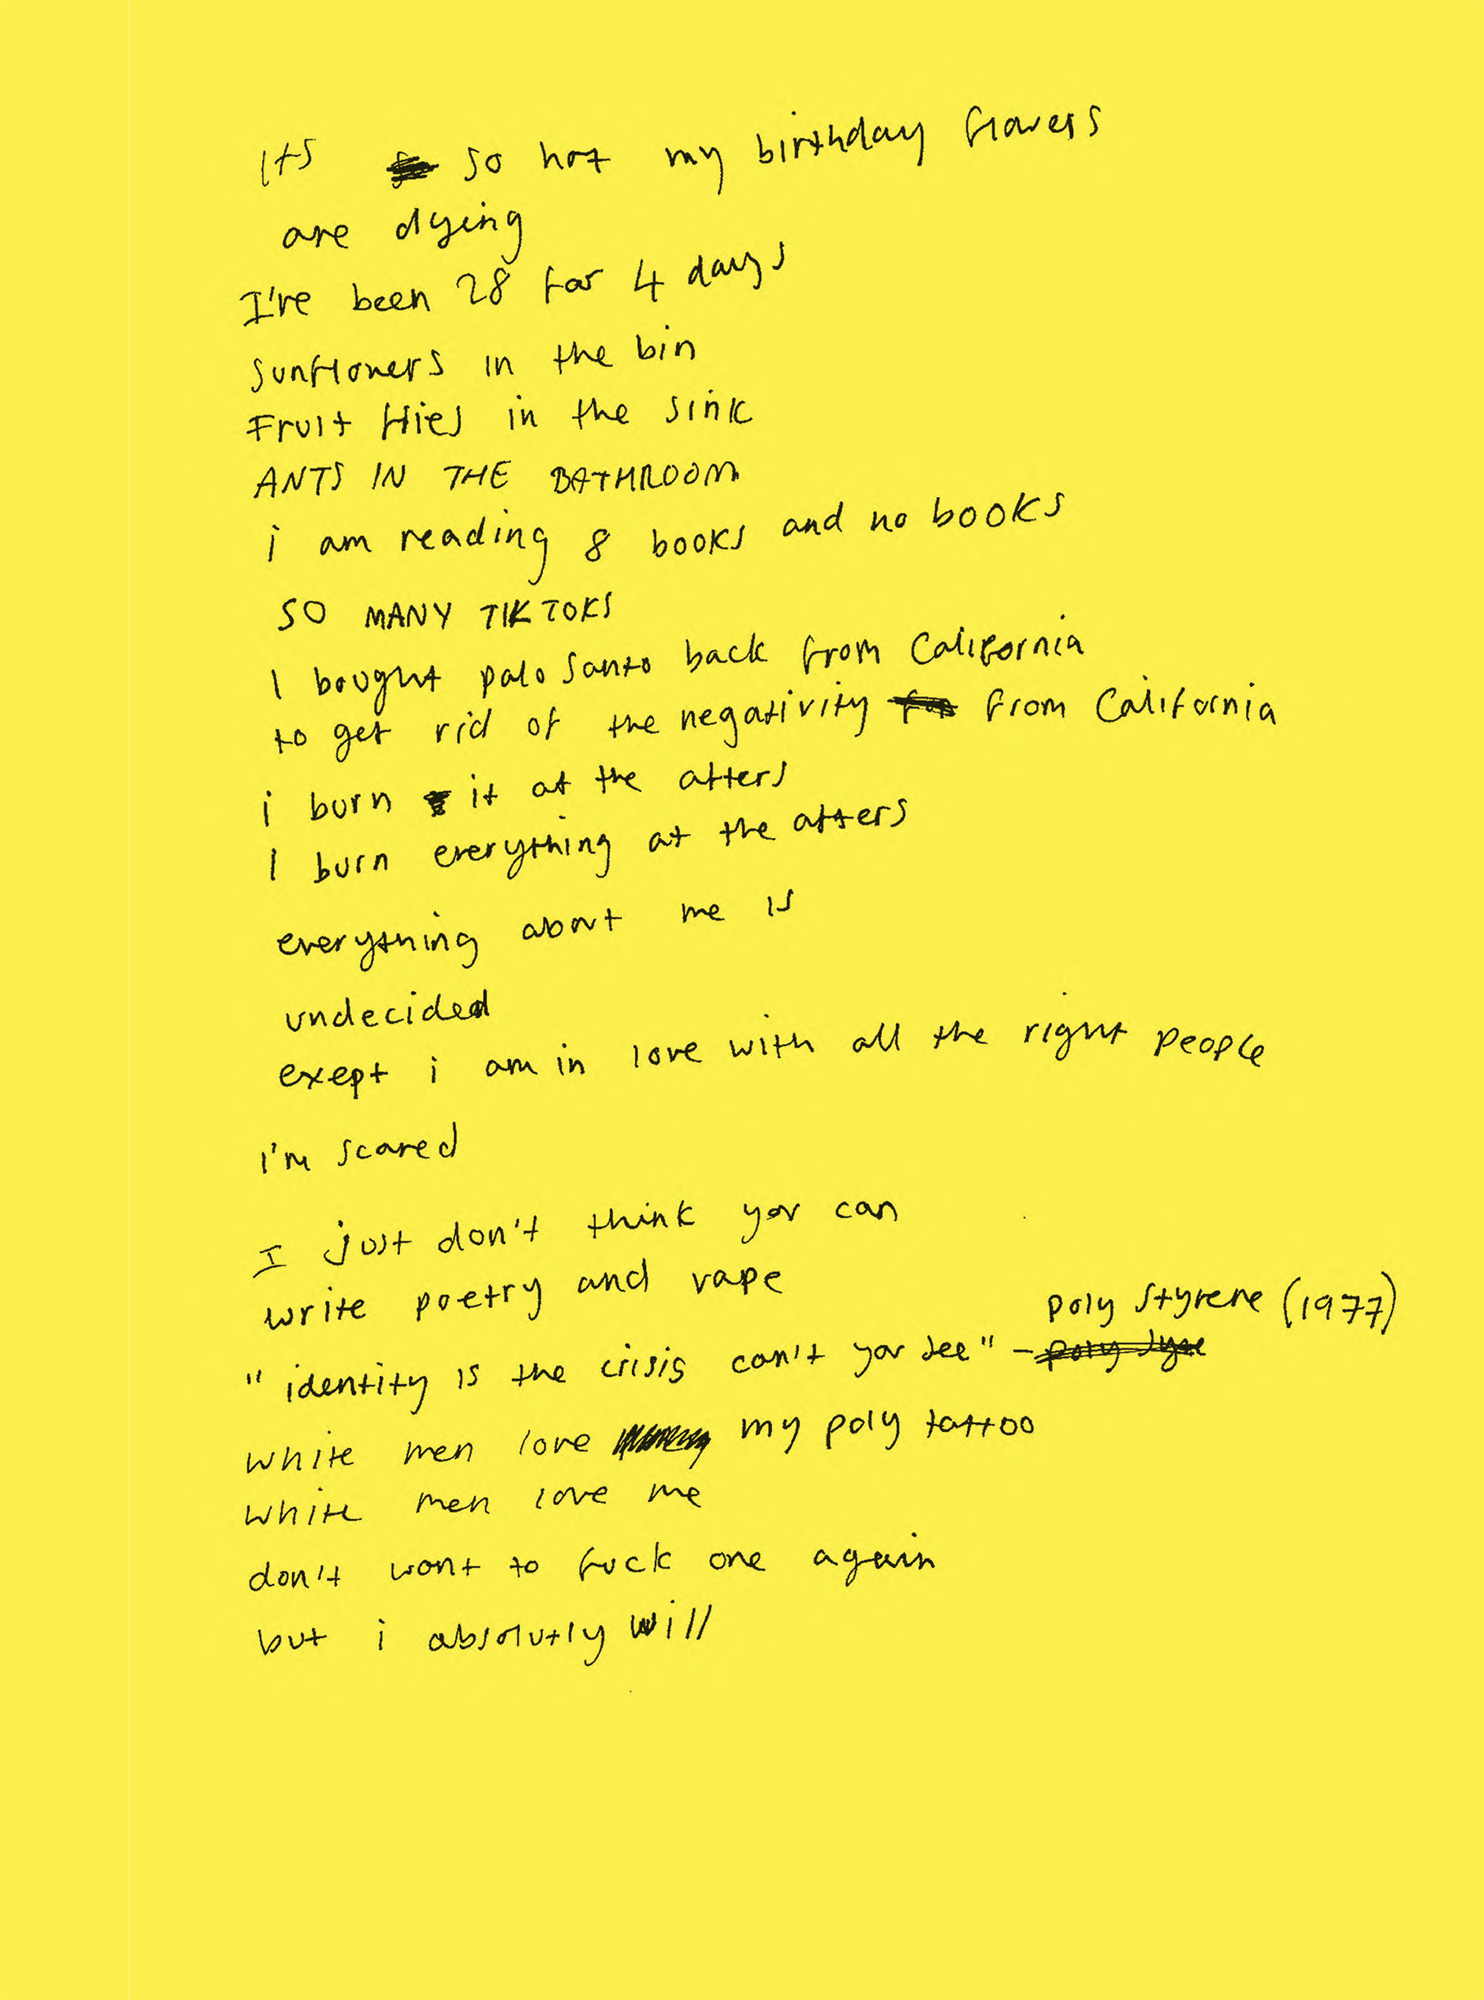 Its so hot my birthday flowers
are dying
I've been 28 for 4 days
Sunflowers in the bin
Fruit flies in the sink
ANTS IN THE BATHROOM
i am reading 8 books and no books
SO MANY TIKTOKS
I bought palo santo back from California
to get rid of the negativity from California
i burn it at the afters
I burn everything at the afters
everything about me is
undecided
exept i am in love with all the right people
i'm scared
I just don't think you can
write poetry and vape
"identity is the crisis can't you see" - Poly Styrene (1977)
white men love my poly tattoo
white men love me
don't want to fuck one again
but i absolutly will